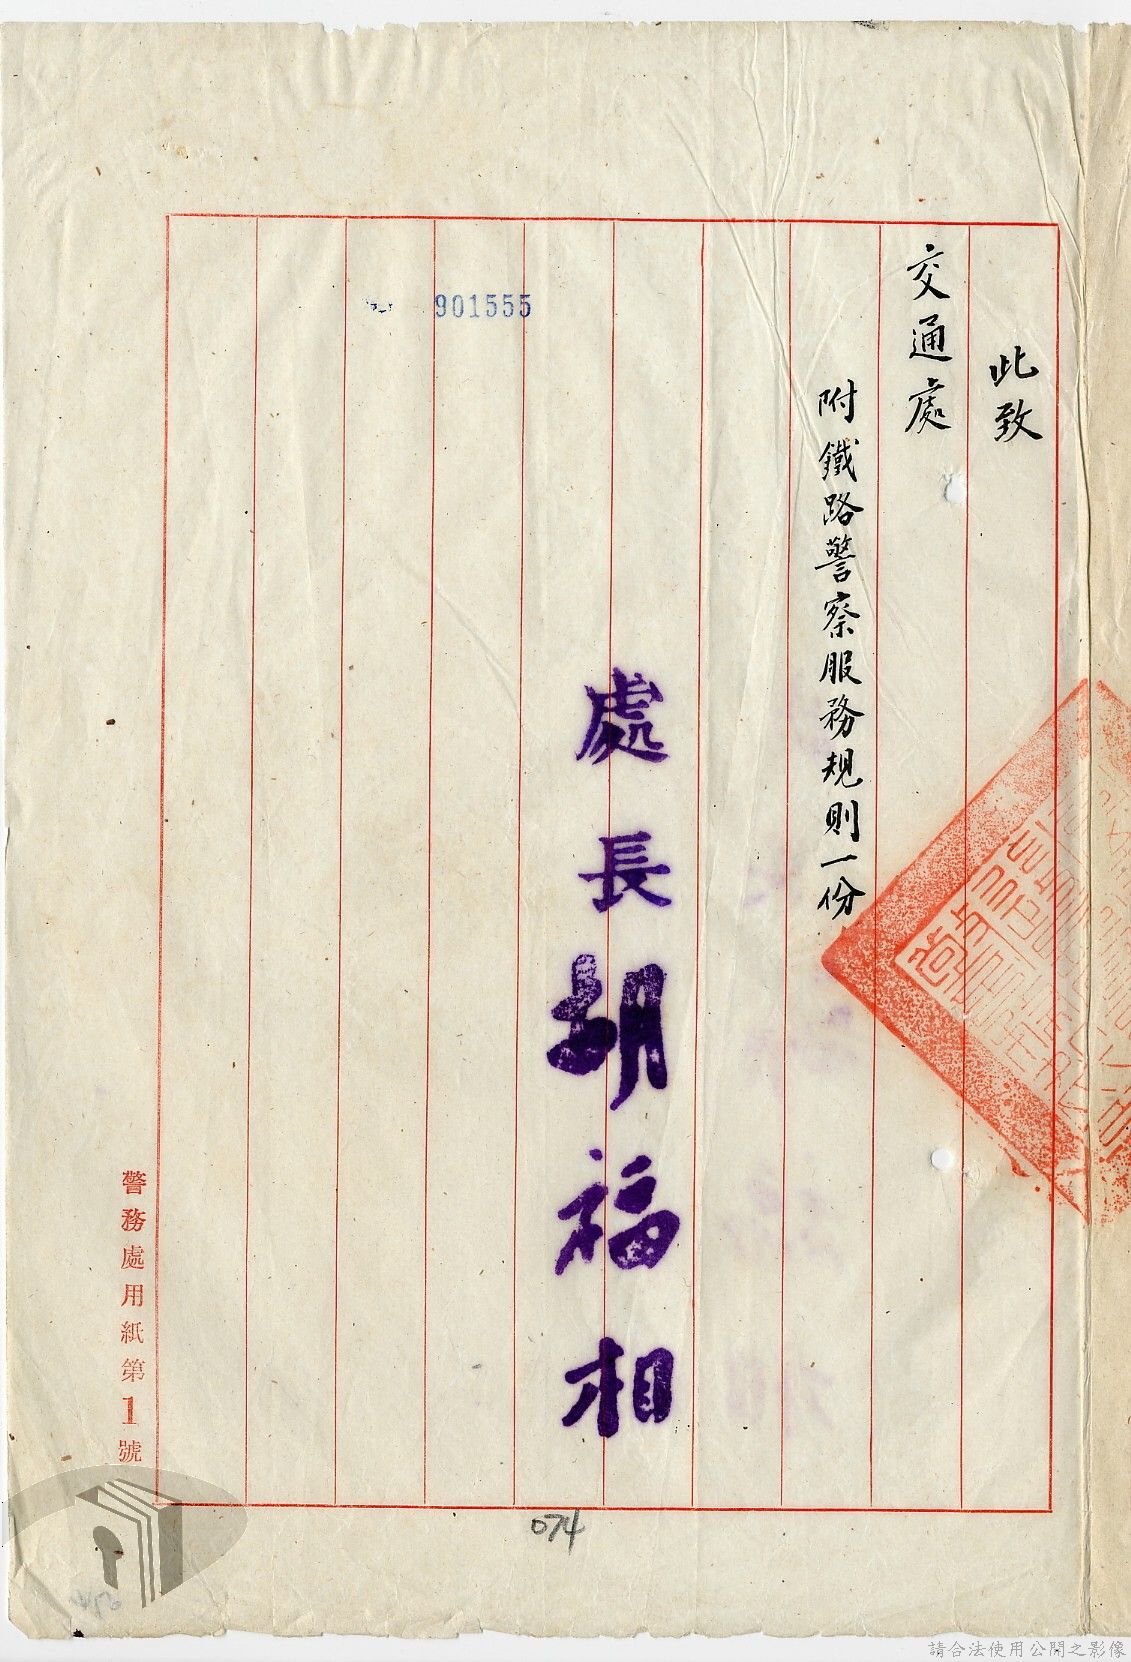 此致
交通處
附鐵路警察服務規則一份
處長胡福相
901555
警務處用紙第1號
074
請合法使用公開之影像